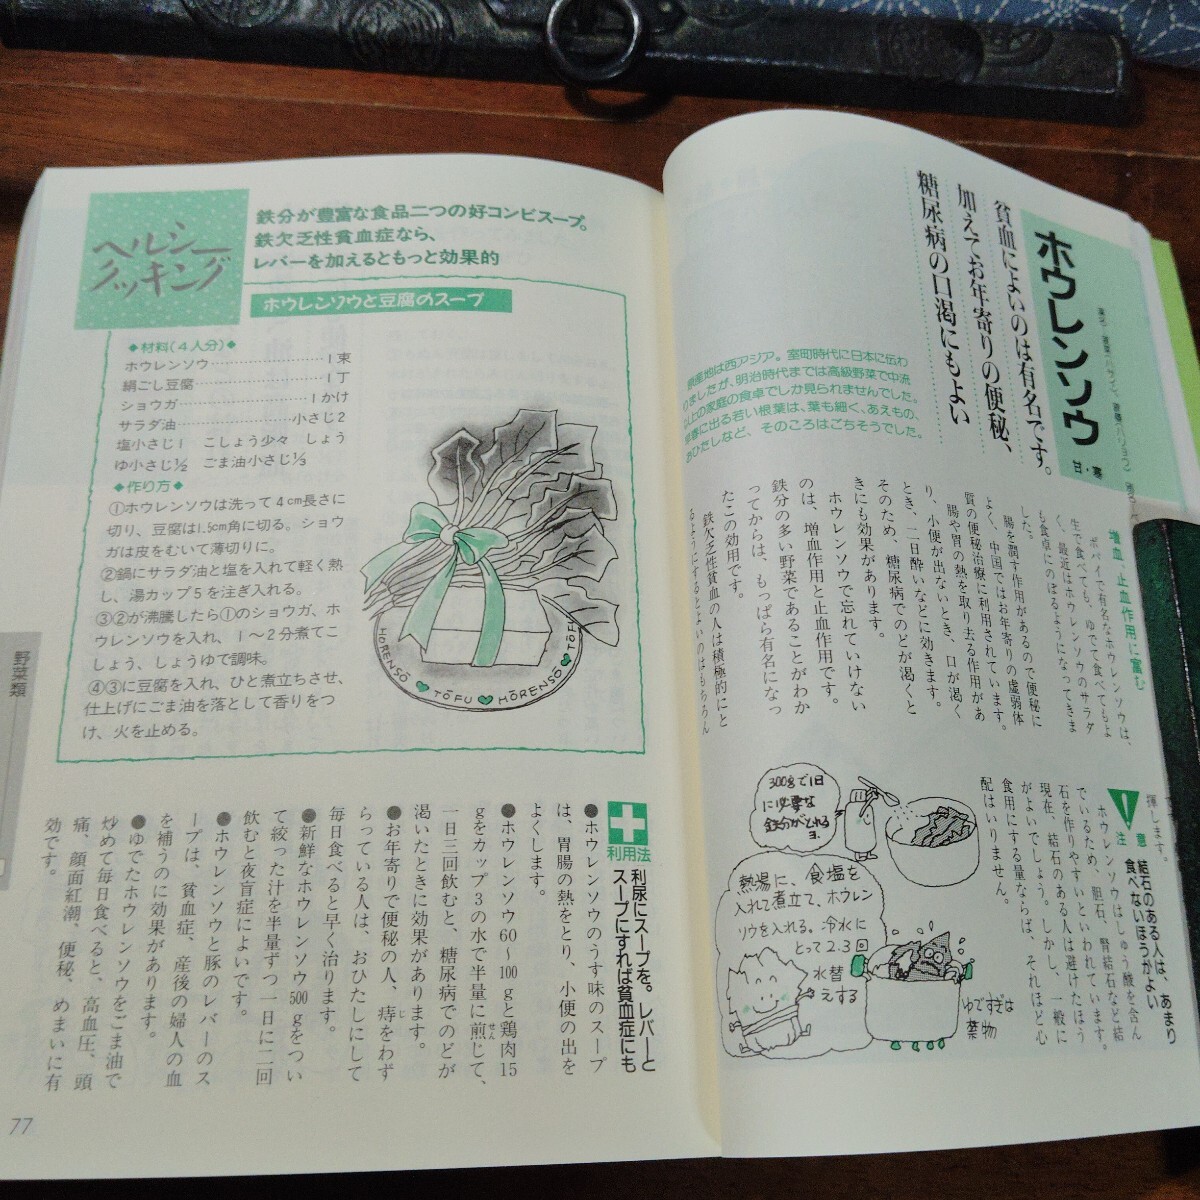 ホウレンソウ
甘・寒
貧血によいのは有名です。
加えてお年寄りの便秘、
糖尿病の口渇にもよい
原産地は西アジア。室町時代に日本に伝わ
りましたが、明治時代までは高級野菜で中流
以上の家庭の食卓でしか見られませんでした。
早春に出る若い根葉は、葉も細く、あえもの、
おひたしなど、そのころはごちそうでした。
増血、止血作用に富む
ポパイで有名なホウレンソウは、
生で食べても、ゆでて食べてもよ
く、最近はホウレンソウのサラダ
も食卓にのぼるようになってきま
した。
腸を潤す作用があるので便秘に
よく、中国ではお年寄りの虚弱体
質の便秘治療に利用されています。
腸や胃の熱を取り去る作用があ
り、小便が出ないとき、口が渇く
とき、二日酔いなどに効きます。
そのため、糖尿病でのどが渇くと
きにも効果があります。
ホウレンソウで忘れていけない
のは、増血作用と止血作用です。
鉄分の多い野菜であることがわか
ってからは、もっぱら有名になっ
たこの効用です。
鉄欠乏性貧血の人は積極的にと
るようにするとよいのはもちろん
揮します。
注意
結石のある人は、あまり
食べないほうがよい
ホウレンソウはしゅう酸を含ん
でいるため、胆石、腎結石など結
石を作りやすいといわれています。
現在、結石のある人は避けたほう
がよいでしょう。しかし、一般に
食用にする量ならば、それほど心
配はいりません。
300gで1日
に必要な
鉄分がとれる
ヨ。
熱湯に、食塩を
入れて煮立て、ホウレン
ソウを入れる。冷水に
とって2.3回
水替
えする
ゆですぎは
禁物
ヘルシー
クッキング
鉄分が豊富な食品二つの好コンビスープ。
鉄欠乏性貧血症なら、
レバーを加えるともっと効果的
ホウレンソウと豆腐のスープ
◆材料(4人分)◆
ホウレンソウ……1束
絹ごし豆腐……1丁
ショウガ……1かけ
サラダ油……小さじ2
塩小さじ1 こしょう少々 しょう
ゆ小さじ½ ごま油小さじ⅓
◆作り方◆
①ホウレンソウは洗って4cm長さに
切り、豆腐は1.5cm角に切る。ショウ
ガは皮をむいて薄切りに。
②鍋にサラダ油と塩を入れて軽く熱
し、湯カップ5を注ぎ入れる。
③②が沸騰したら①のショウガ、ホ
ウレンソウを入れ、1〜2分煮てこ
しょう、しょうゆで調味。
④③に豆腐を入れ、ひと煮立ちさせ、
仕上げにごま油を落として香りをつ
け、火を止める。
HŌRENSŌ ♥ TŌFU ♥ HŌRENSŌ ♥ TŌFU
利用法
利尿にスープを。レバーと
スープにすれば貧血症にも
●ホウレンソウのうす味のスープ
は、胃腸の熱をとり、小便の出を
よくします。
●ホウレンソウ60〜100gと鶏肉15
gをカップ3の水で半量に煎じて、
せん
一日三回飲むと、糖尿病でのどが
渇いたときに効果があります。
●お年寄りで便秘の人、痔をわず
じ
らっている人は、おひたしにして
毎日食べると早く治ります。
●新鮮なホウレンソウ500gをつい
て絞った汁を半量ずつ一日に二回
飲むと夜盲症によいです。
●ホウレンソウと豚のレバーのス
ープは、貧血症、産後の婦人の血
を補うのに効果があります。
●ゆでたホウレンソウをごま油で
炒めて毎日食べると、高血圧、頭
痛、顔面紅潮、便秘、めまいに有
効です。
野菜類
77